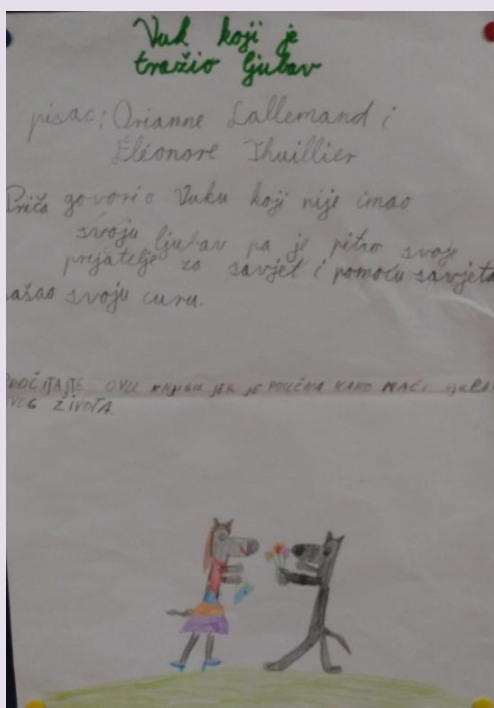 Vuk koji je
tražio ljubav
pisac: Orianne Lallemand i
Éléonore Thuillier
Priča govori o Vuku koji nije imao
svoju ljubav pa je pitao svoje
prijatelje za savjet i pomoću savjeta
našao svoju curu.
PROČITAJTE OVU KNJIGU JER JE POUČNA KAKO NAĆI LJUBAV
SVOG ŽIVOTA.